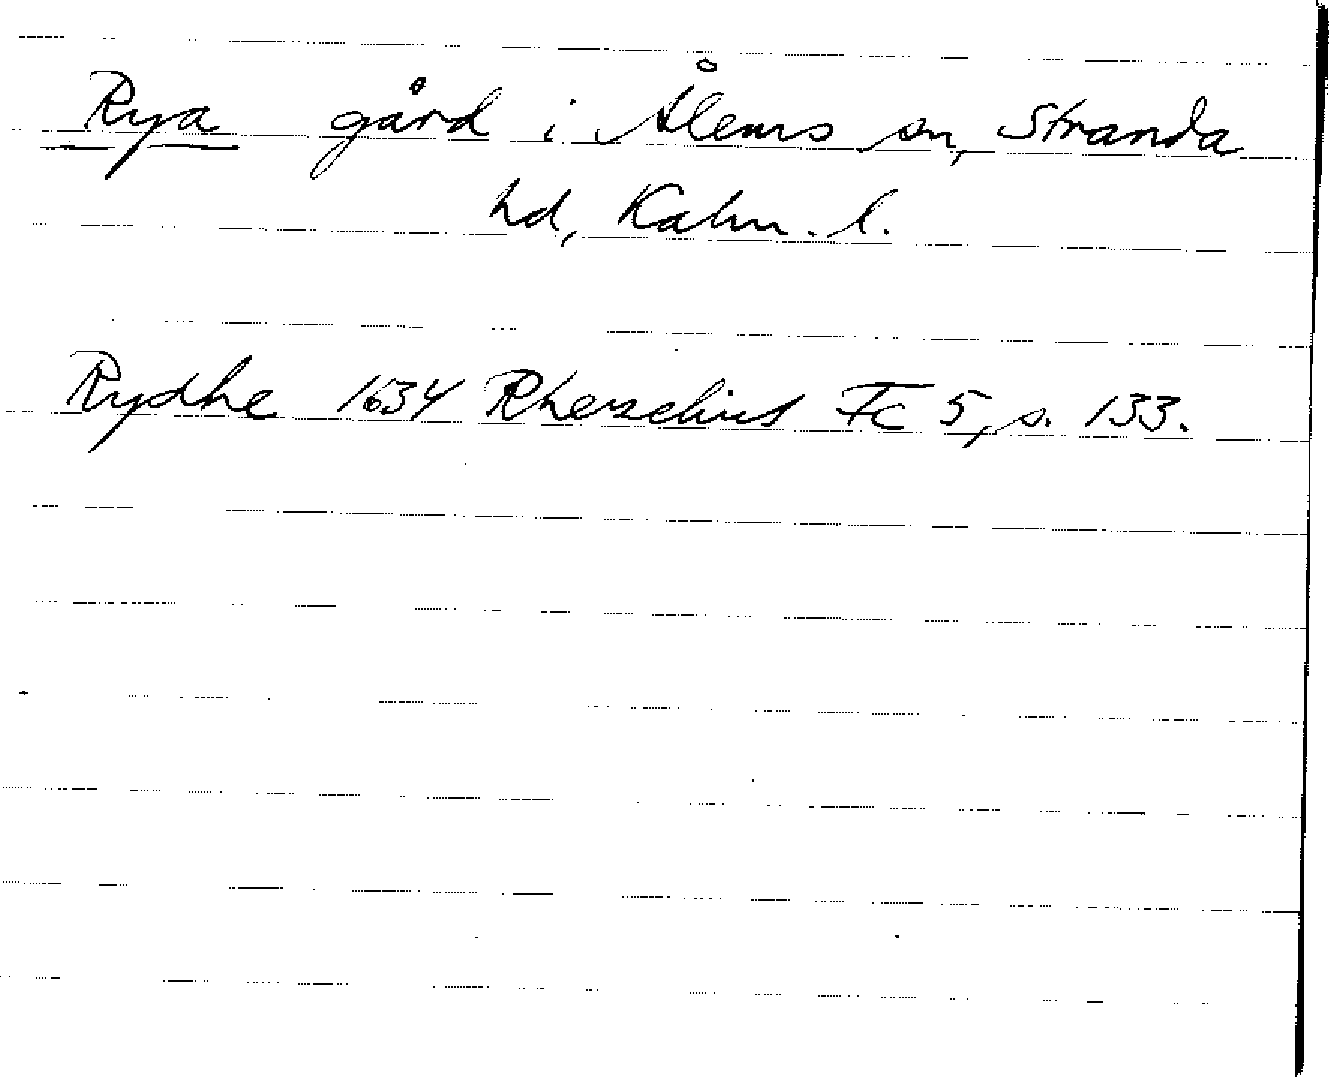 Rya gård i Ålems sn, Stranda
hd, Kalm. l.
Rydhe 1634 Rhezelius Fc 5, s. 133.